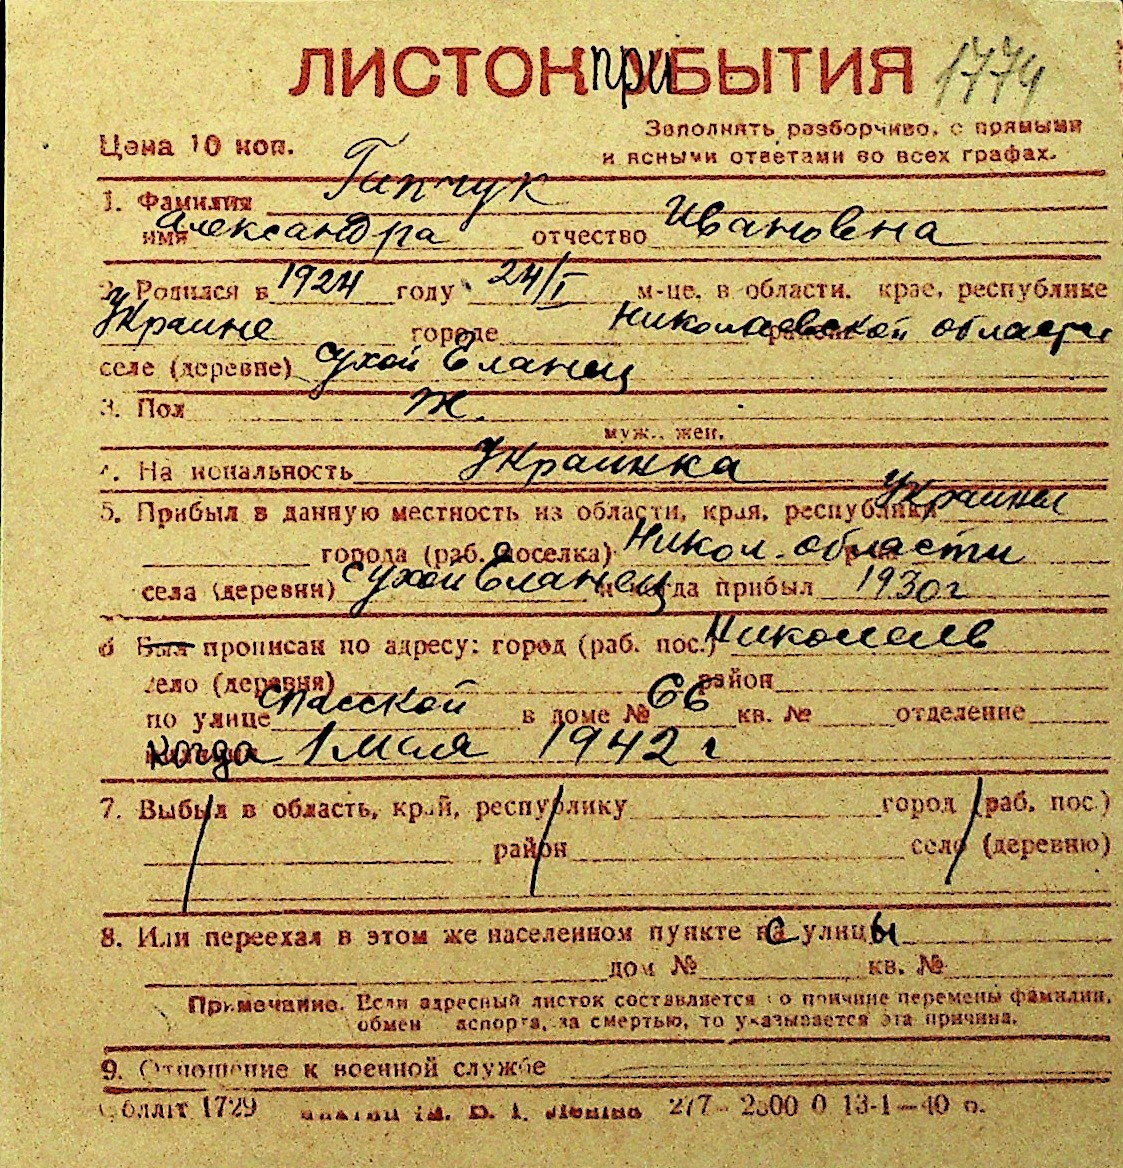 ЛИСТОК прИБЫТИЯ 1774
Цена 10 коп.
Заполнять разборчиво, с прямыми
и ясными ответами во всех графах.
1. Фамилия Гапчук
имя Александра отчество Ивановна
2. Родился в 1924 году 24/I м-це, в области, крае, республике
Украине городе Николаевской области
селе (деревне) Сухой Еланец
3. Пол ж.
муж., жен.
4. Национальность Украинка
5. Прибыл в данную местность из области, края, республики Украины
города (раб. поселка) Никол. области
села (деревни) Сухой Еланец и когда прибыл 1930г
6 Был прописан по адресу: город (раб. пос.) Николаев
село (деревня) район
по улице Спасской в доме № 66 кв. № отделение
когда 1 мая 1942 г
7. Выбыл в область, край, республику город (раб. пос.)
район село (деревню)
8. Или переехал в этом же населенном пункте с улицы
дом № кв. №
Примечание. Если адресный листок составляется по причине перемены фамилии,
обмен паспорта, за смертью, то указывается эта причина.
9. Отношение к военной службе
Обллiт 1729 iм. В. I. Ленiна 277—2800 0 13-1—40 р.